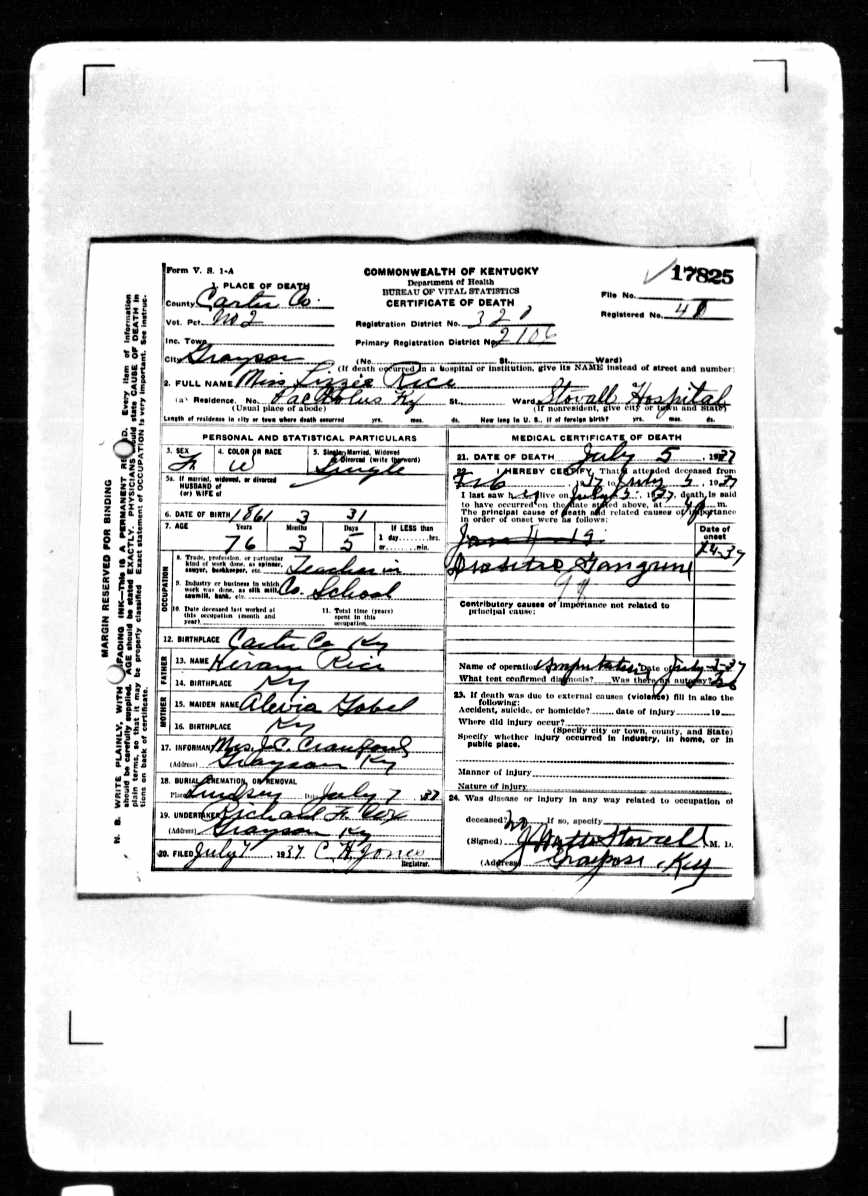 Form V. S. 1-A
COMMONWEALTH OF KENTUCKY
Department of Health
BUREAU OF VITAL STATISTICS
CERTIFICATE OF DEATH
17825
File No.
Registered No. 40
1. PLACE OF DEATH
County Carter Co.
Vot. Pct. No 2
Registration District No. 320
Inc. Town
Primary Registration District No. 2106
City Grayson (No. St. Ward)
(If death occurred in a hospital or institution, give its NAME instead of street and number)
2. FULL NAME Miss Lizzie Rice
(a) Residence. No. Pactolus Ky St. Ward. Stovall Hospital
(Usual place of abode) (If nonresident, give city or town and State)
Length of residence in city or town where death occurred yrs. mos. ds. How long in U. S., if of foreign birth? yrs. mos. ds.
PERSONAL AND STATISTICAL PARTICULARS
3. SEX 4. COLOR OR RACE 5. Single, Married, Widowed
or Divorced (write the word)
F W Single
5a. If married, widowed, or divorced
HUSBAND of
(or) WIFE of
6. DATE OF BIRTH 1861 3 31
7. AGE Years Months Days If LESS than
1 day, hrs.
76 3 5 or min.
OCCUPATION
8. Trade, profession, or particular
kind of work done, as spinner,
sawyer, bookkeeper, etc. Teacher in
9. Industry or business in which
work was done, as silk mill,
sawmill, bank, etc. Co. School
10. Date deceased last worked at
this occupation (month and
year)
11. Total time (years)
spent in this
occupation
12. BIRTHPLACE Carter Co Ky
FATHER
13. NAME Hiram Rice
14. BIRTHPLACE Ky
MOTHER
15. MAIDEN NAME Alevia Gobel
16. BIRTHPLACE Ky
17. INFORMANT Mrs J. C. Crawford
(Address) Grayson Ky
18. BURIAL, CREMATION, OR REMOVAL
Place Lindsey Date July 7 37
19. UNDERTAKER Richard F.
(Address) Grayson Ky
20. FILED July 7 1937 C H Jones
Registrar.
MEDICAL CERTIFICATE OF DEATH
21. DATE OF DEATH July 5, 1937
22. I HEREBY CERTIFY, That I attended deceased from
Feb 37 to July 5, 1937
I last saw h alive on July 5, 1937, death is said
to have occurred on the date stated above, at m.
The principal cause of death and related causes of importance
in order of onset were as follows:
Date of
onset
Diabetic Gangrene
Contributory causes of importance not related to
principal cause:
Name of operation Amputation Date of July 3-37
What test confirmed diagnosis? Was there an autopsy?
23. If death was due to external causes (violence) fill in also the
following:
Accident, suicide, or homicide? date of injury 19
Where did injury occur?
(Specify city or town, county, and State)
Specify whether injury occurred in industry, in home, or in
public place.
Manner of injury
Nature of injury
24. Was disease or injury in any way related to occupation of
deceased? No If so, specify
(Signed) J Watts Stovall M. D.
(Address) Grayson, Ky
MARGIN RESERVED FOR BINDING